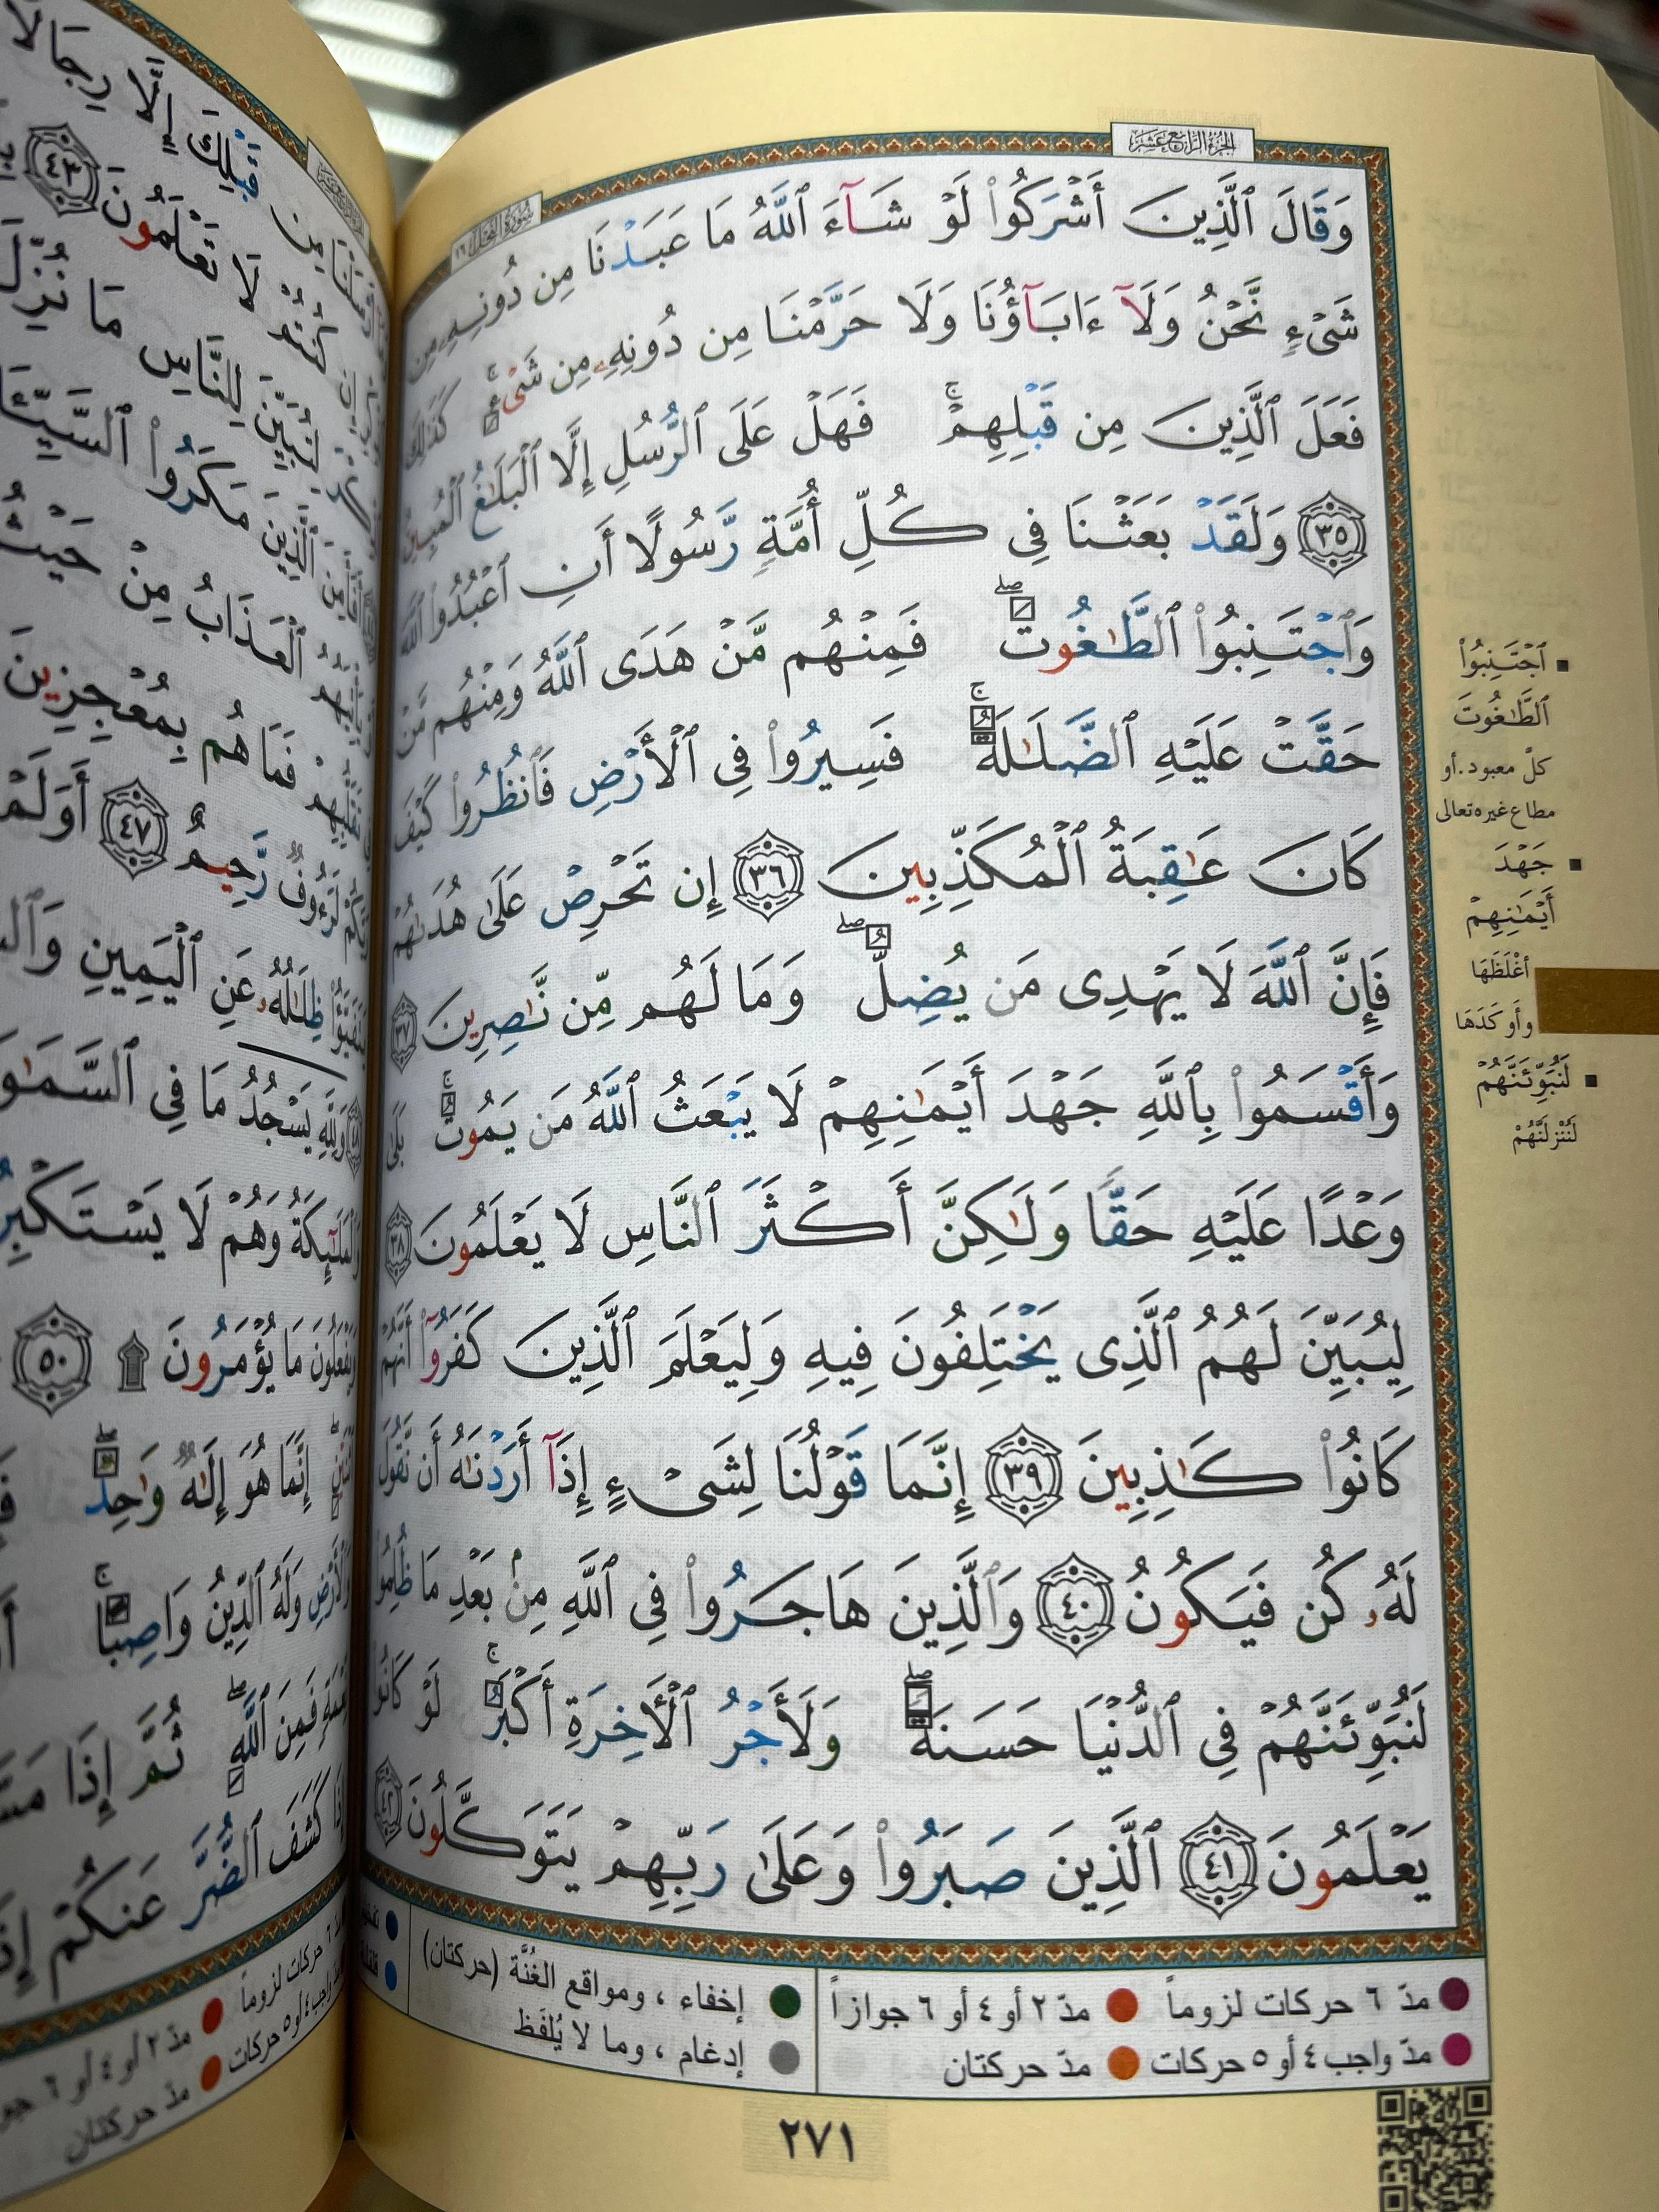 الجزء الرابع عشر
سورة النحل ١٦
وَقَالَ ٱلَّذِينَ أَشۡرَكُواْ لَوۡ شَآءَ ٱللَّهُ مَا عَبَدۡنَا مِن دُونِهِۦ مِن
شَيۡءٖ نَّحۡنُ وَلَآ ءَابَآؤُنَا وَلَا حَرَّمۡنَا مِن دُونِهِۦ مِن شَيۡءٖۚ كَذَٰلِكَ
فَعَلَ ٱلَّذِينَ مِن قَبۡلِهِمۡۚ فَهَلۡ عَلَى ٱلرُّسُلِ إِلَّا ٱلۡبَلَٰغُ ٱلۡمُبِينُ
٣٥ وَلَقَدۡ بَعَثۡنَا فِي كُلِّ أُمَّةٖ رَّسُولًا أَنِ ٱعۡبُدُواْ ٱللَّهَ
وَٱجۡتَنِبُواْ ٱلطَّٰغُوتَۖ فَمِنۡهُم مَّنۡ هَدَى ٱللَّهُ وَمِنۡهُم مَّنۡ
حَقَّتۡ عَلَيۡهِ ٱلضَّلَٰلَةُۚ فَسِيرُواْ فِي ٱلۡأَرۡضِ فَٱنظُرُواْ كَيۡفَ
كَانَ عَٰقِبَةُ ٱلۡمُكَذِّبِينَ ٣٦ إِن تَحۡرِصۡ عَلَىٰ هُدَىٰهُمۡ
فَإِنَّ ٱللَّهَ لَا يَهۡدِي مَن يُضِلُّۖ وَمَا لَهُم مِّن نَّٰصِرِينَ ٣٧
وَأَقۡسَمُواْ بِٱللَّهِ جَهۡدَ أَيۡمَٰنِهِمۡ لَا يَبۡعَثُ ٱللَّهُ مَن يَمُوتُۚ بَلَىٰ
وَعۡدًا عَلَيۡهِ حَقّٗا وَلَٰكِنَّ أَكۡثَرَ ٱلنَّاسِ لَا يَعۡلَمُونَ ٣٨
لِيُبَيِّنَ لَهُمُ ٱلَّذِي يَخۡتَلِفُونَ فِيهِ وَلِيَعۡلَمَ ٱلَّذِينَ كَفَرُوٓاْ أَنَّهُمۡ
كَانُواْ كَٰذِبِينَ ٣٩ إِنَّمَا قَوۡلُنَا لِشَيۡءٍ إِذَآ أَرَدۡنَٰهُ أَن نَّقُولَ
لَهُۥ كُن فَيَكُونُ ٤٠ وَٱلَّذِينَ هَاجَرُواْ فِي ٱللَّهِ مِنۢ بَعۡدِ مَا ظُلِمُواْ
لَنُبَوِّئَنَّهُمۡ فِي ٱلدُّنۡيَا حَسَنَةٗۖ وَلَأَجۡرُ ٱلۡأٓخِرَةِ أَكۡبَرُۚ لَوۡ كَانُواْ
يَعۡلَمُونَ ٤١ ٱلَّذِينَ صَبَرُواْ وَعَلَىٰ رَبِّهِمۡ يَتَوَكَّلُونَ ٤٢
ٱجۡتَنِبُواْ
ٱلطَّٰغُوتَ
كلّ معبود.أو
مطاع غيره تعالى
جَهۡدَ
أَيۡمَٰنِهِمۡ
أغْلَظَهَا
وأوكَدَهَا
لَنُبَوِّئَنَّهُمۡ
لَنُنْزِلَنَّهُمْ
مدّ ٦ حركات لزوماً
مدّ ٢ أو ٤ أو ٦ جوازاً
مدّ واجب ٤ أو ٥ حركات
مدّ حركتان
إخفاء ، ومواقع الغُنَّة (حركتان)
إدغام ، وما لا يُلفَظ
٢٧١
قَبۡلِكَ إِلَّا رِجَالٗا
كُنتُمۡ لَا تَعۡلَمُونَ ٤٣
لِتُبَيِّنَ لِلنَّاسِ مَا نُزِّلَ
أَفَأَمِنَ ٱلَّذِينَ مَكَرُواْ ٱلسَّيِّـَٔاتِ
ٱلۡعَذَابُ مِنۡ حَيۡثُ
فَمَا هُم بِمُعۡجِزِينَ
لَرَءُوفٞ رَّحِيمٌ ٤٧ أَوَلَمۡ
ظِلَٰلُهُۥ عَنِ ٱلۡيَمِينِ
وَلِلَّهِ يَسۡجُدُۤ مَا فِي
وَٱلۡمَلَٰٓئِكَةُ وَهُمۡ لَا يَسۡتَكۡبِرُ
وَيَفۡعَلُونَ مَا يُؤۡمَرُونَ ۩ ٥٠
إِنَّمَا هُوَ إِلَٰهٞ وَٰحِدٞۖ
وَلَهُ ٱلدِّينُ وَاصِبًاۚ
فَمِنَ ٱللَّهِۖ ثُمَّ إِذَا
كَشَفَ ٱلضُّرَّ عَنكُمۡ
مدّ ٢ أو ٤ أو ٦
مدّ حركتان